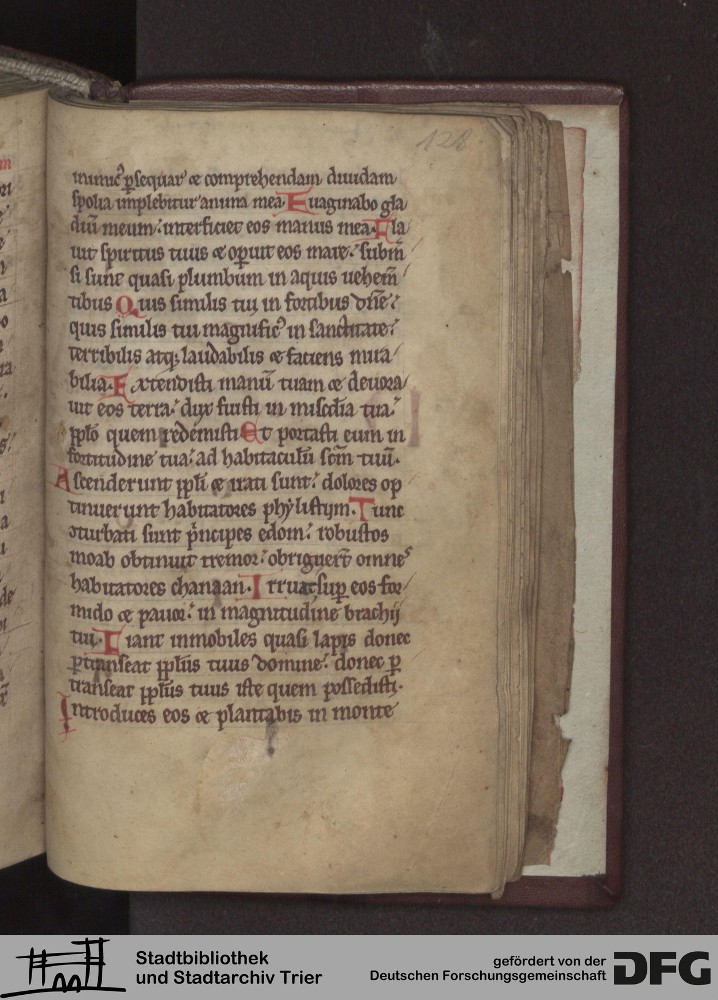 128
inimic⁹ ꝑsequar ⁊ comprehendam diuidam
spolia implebitur anima mea. Euaginabo gla
diū meum: interficiet eos manus mea. Fla
uit spiritus tuus ⁊ oꝑuit eos mare: subm̄
si sunt quasi plumbum in aquis uehem̄
tibus Quis similis tui in fortibus dn̄e:
quis similis tui magnific⁹ in sanctitate:
terribilis atq; laudabilis ⁊ faciens mira
bilia. Extendisti manū tuam ⁊ deuora
uit eos terra: dux fuisti in mīscdīa tua:
pp̄lo quem redemisti Et portasti eum in
fortitudine tua: ad habitaculū scm̄ tuū.
Ascenderunt pp̄li ⁊ irati sunt: dolores op
tinuerunt habitatores phylistijm. Tunc
ɔturbati sunt pͥncipes edom: robustos
moab obtinuit tremor: obriguerūt omnes
habitatores chanaan. Irruat suꝑ eos for
mido ⁊ pauor: in magnitudine brachij
tui. Fiant inmobiles quasi lapis donec
ꝑtranseat pp̄lus tuus domine: donec ꝑ
transeat pp̄lus tuus iste quem possedisti.
Introduces eos ⁊ plantabis in monte
Stadtbibliothek
und Stadtarchiv Trier
gefördert von der
Deutschen Forschungsgemeinschaft
DFG